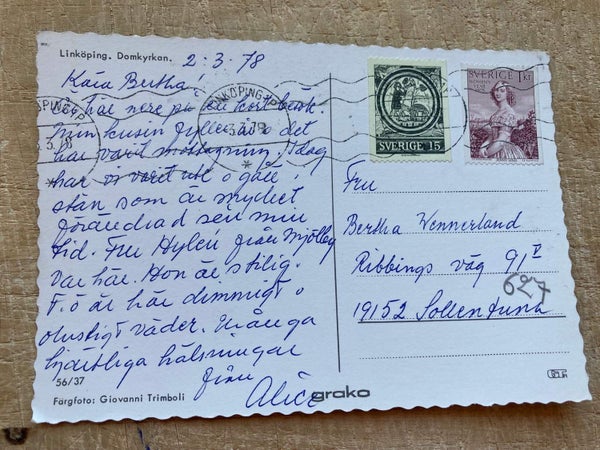 Linköping. Domkyrkan.
2.3.78
Kära Bertha!
Är här nere på en kort besök.
Min kusin fyller år o det
har varit mottagning. Idag
har vi varit ute o gått i
stan som är mycket
förändrad sen min
tid. Fru Hylén från Mjölby
var här. Hon är stilig.
F.ö är här dimmigt o
olustigt väder. Många
hjärtliga hälsningar
från
Alice
56/37
Färgfoto: Giovanni Trimboli
grako
LINKÖPING
SVERIGE 15
SVERIGE 1 KR
Fru
Bertha Wennerland
Ribbings väg 91 V
627
19152 Sollentuna